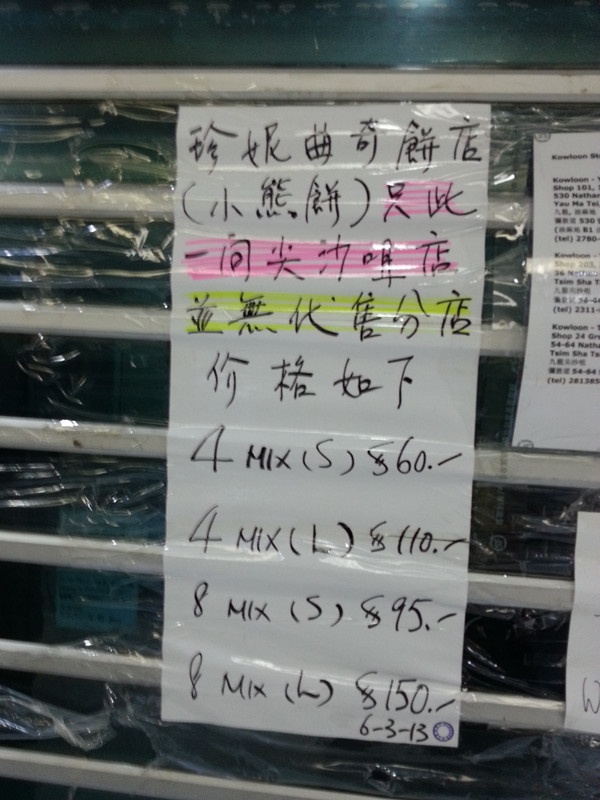 珍妮曲奇餅店
(小熊餅)只此
一间尖沙咀店
並無代售分店
价格如下
4 MIX (S) $60.-
4 MIX (L) $110.-
8 MIX (S) $95.-
8 MIX (L) $150.-
6-3-13
Kowloon
Kowloon -
Shop 101,
530 Nathan
Yau Ma Tei,
(tel) 2780-
Kowloon -
Shop 203,
36 Nathan
Tsim Sha T
(tel) 2311-
Kowloon -
Shop 24
54-64 Natha
Tsim Sha T
九龍尖沙咀
彌敦道 54-64
(tel) 281385
W